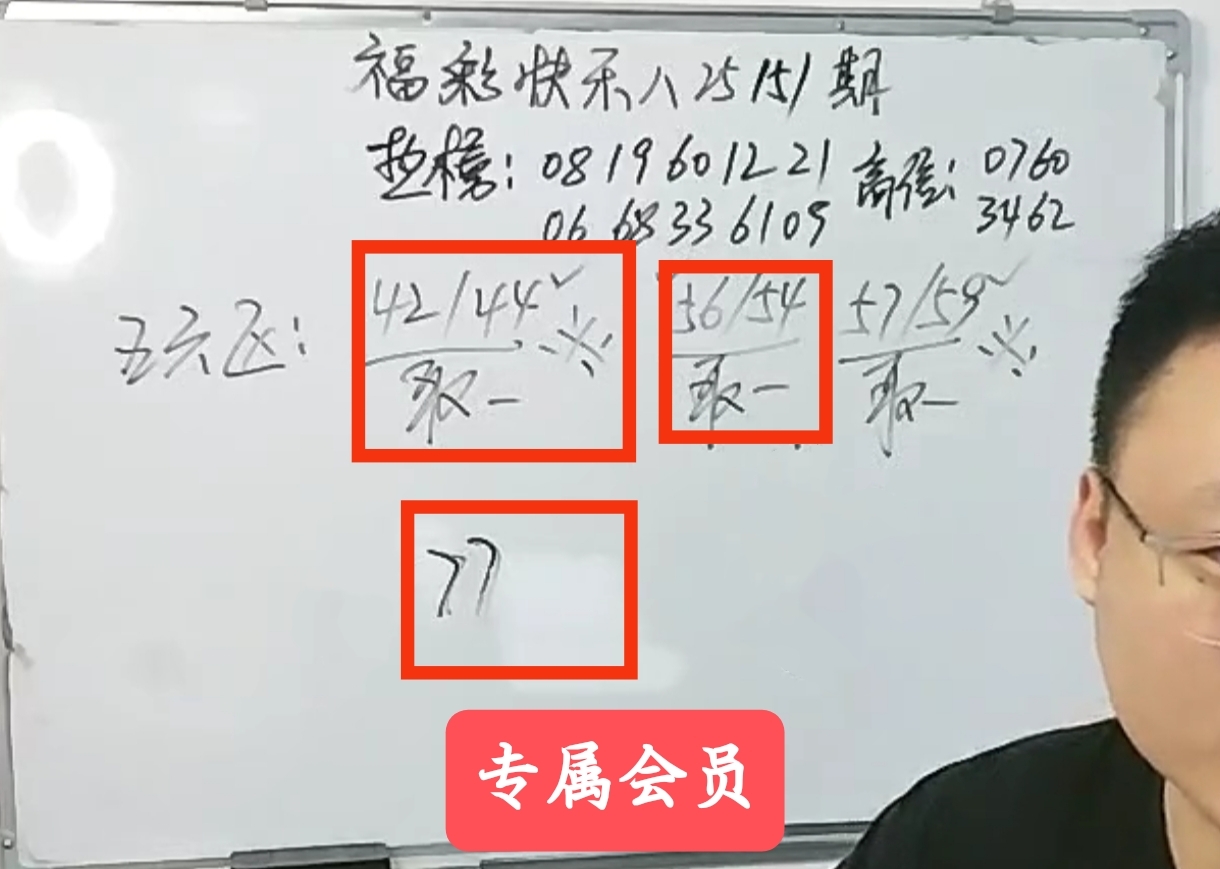 福彩快乐八25151期
热榜: 0819601221 高倍: 0760
06 68 33 6109 3462
五六区: 42/44✓※ 56/54 57/59✓※
取一 取一 取一
77
专属会员